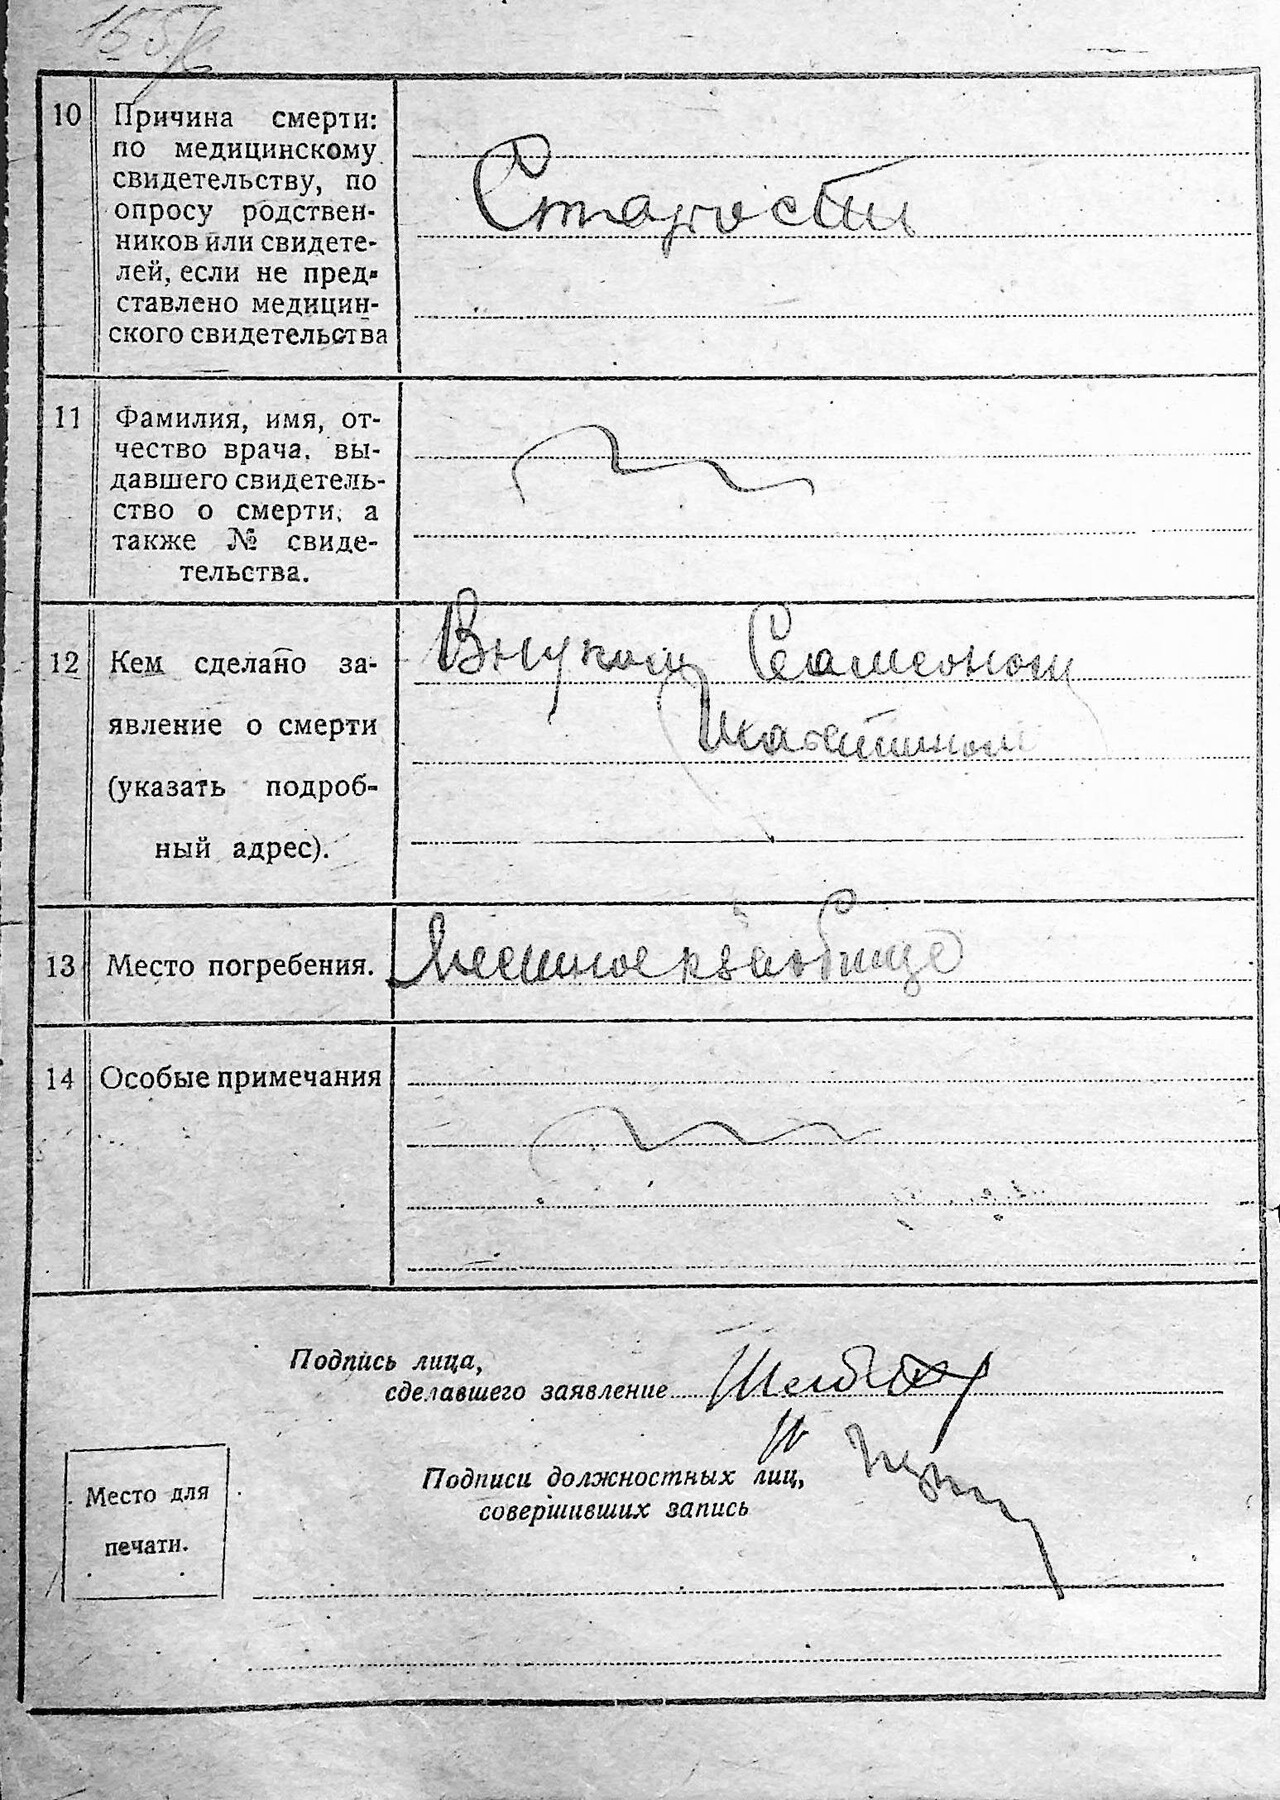 10 Причина смерти:
по медицинскому
свидетельству, по
опросу родствен-
ников или свидете-
лей, если не пред-
ставлено медицин-
ского свидетельства
Старости
11 Фамилия, имя, от-
чество врача, вы-
давшего свидетель-
ство о смерти, а
также № свиде-
тельства.
12 Кем сделано за-
явление о смерти
(указать подроб-
ный адрес).
Внуком
13 Место погребения.
Местное кладбище
14 Особые примечания
Подпись лица,
сделавшего заявление
Подписи должностных лиц,
совершивших запись
Место для
печати.